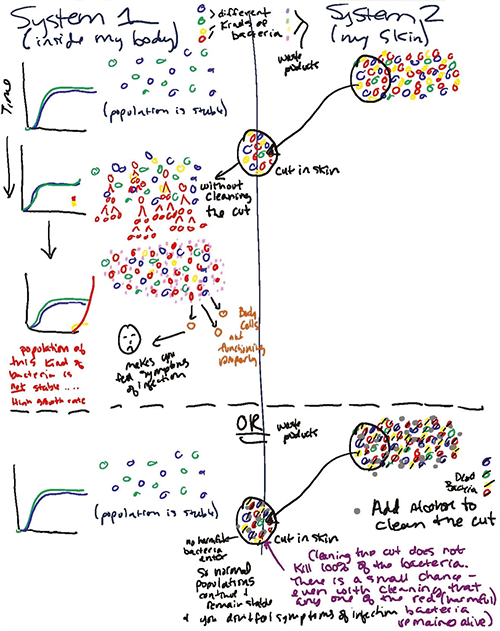 System 1
(inside my body)
different
kinds of
bacteria
waste
products
System 2
(my skin)
Time
(population is stable)
cut in skin
without
cleaning
the cut
Body
Cells
not
functioning
properly
makes you
feel symptoms
of infection
population of
this kind of
bacteria is
not stable ....
High growth rate
OR
waste
products
Dead
Bacteria
Add Alcohol to
clean the cut
(population is stable)
cut in skin
no harmful
bacteria
enter
So normal
populations
continue &
remain stable
& you don't feel symptoms of infection
Cleaning the cut does not
kill 100% of the bacteria.
There is a small chance -
even with cleaning that
any one of the red (harmful)
bacteria
remains alive)